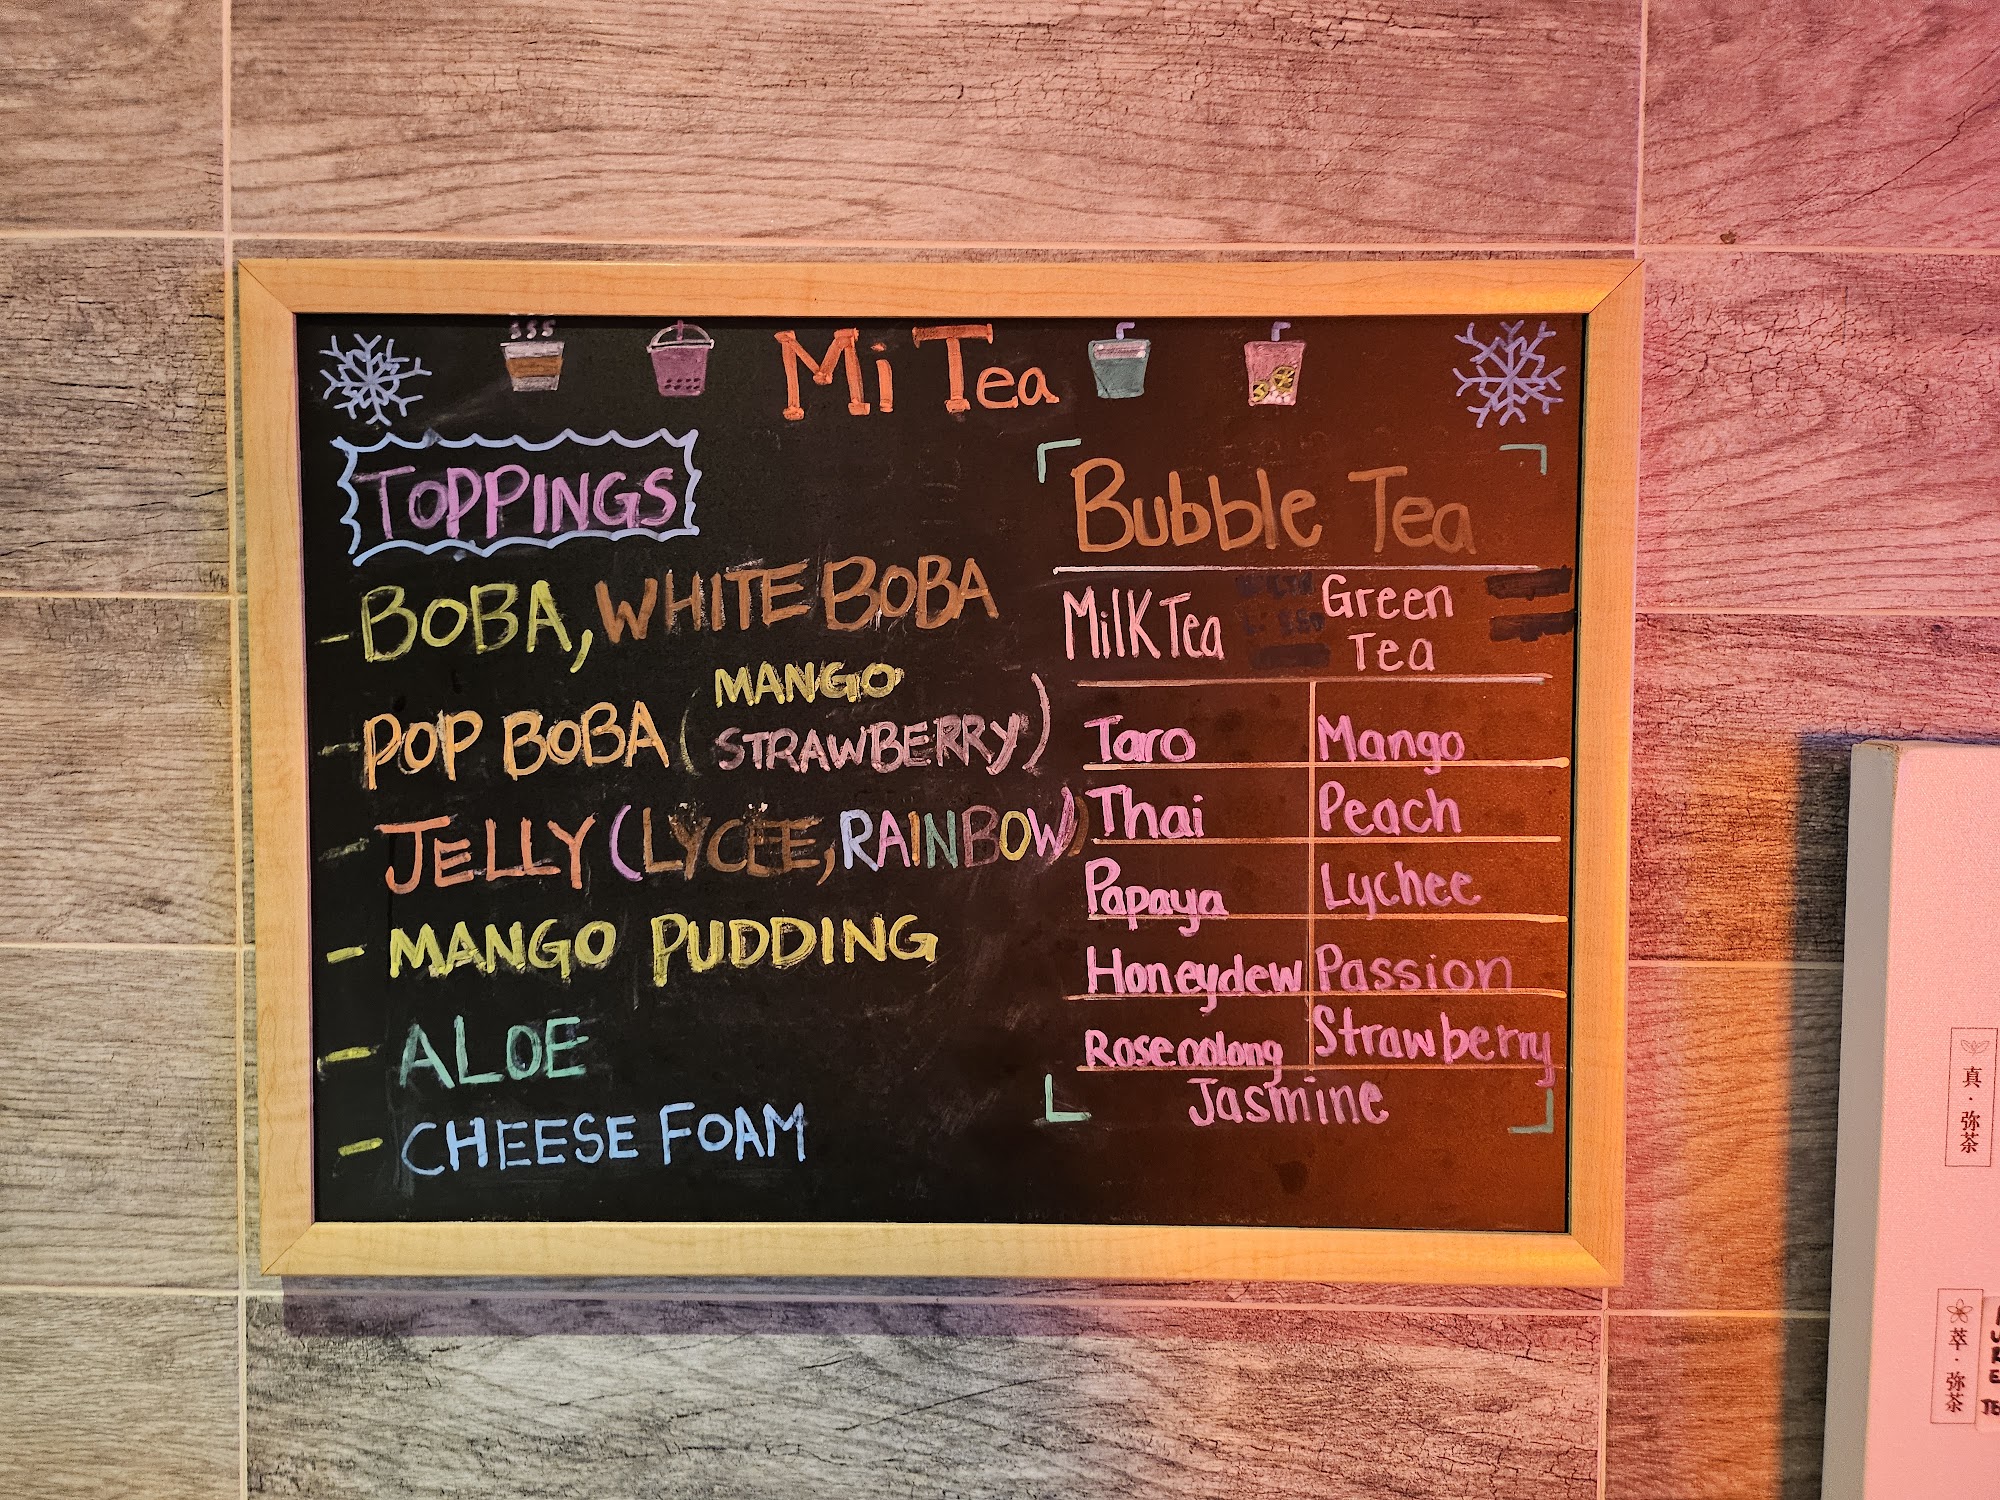 Mi Tea
TOPPINGS
- BOBA, WHITE BOBA
- POP BOBA (MANGO
STRAWBERRY)
- JELLY (LYCEE, RAINBOW)
- MANGO PUDDING
- ALOE
- CHEESE FOAM
Bubble Tea
Milk Tea
Green
Tea
Taro Mango
Thai Peach
Papaya Lychee
Honeydew Passion
Rose oolong Strawberry
Jasmine
真·弥茶
萃·弥茶